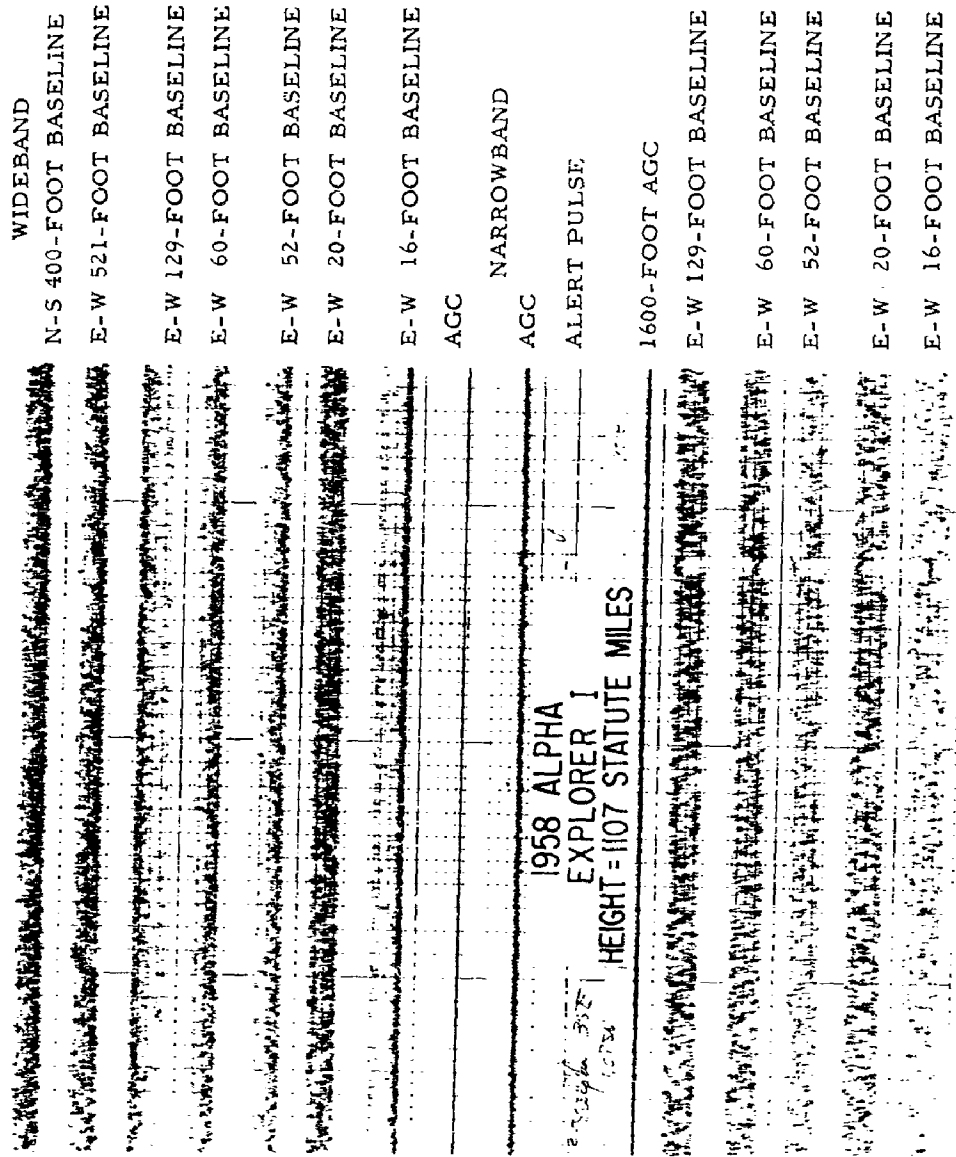 WIDEBAND
N-S 400-FOOT BASELINE
E-W 521-FOOT BASELINE
E-W 129-FOOT BASELINE
E-W 60-FOOT BASELINE
E-W 52-FOOT BASELINE
E-W 20-FOOT BASELINE
E-W 16-FOOT BASELINE
AGC
NARROWBAND
AGC
ALERT PULSE
1600-FOOT AGC
E-W 129-FOOT BASELINE
E-W 60-FOOT BASELINE
E-W 52-FOOT BASELINE
E-W 20-FOOT BASELINE
E-W 16-FOOT BASELINE
1958 ALPHA
EXPLORER I
HEIGHT = 1107 STATUTE MILES